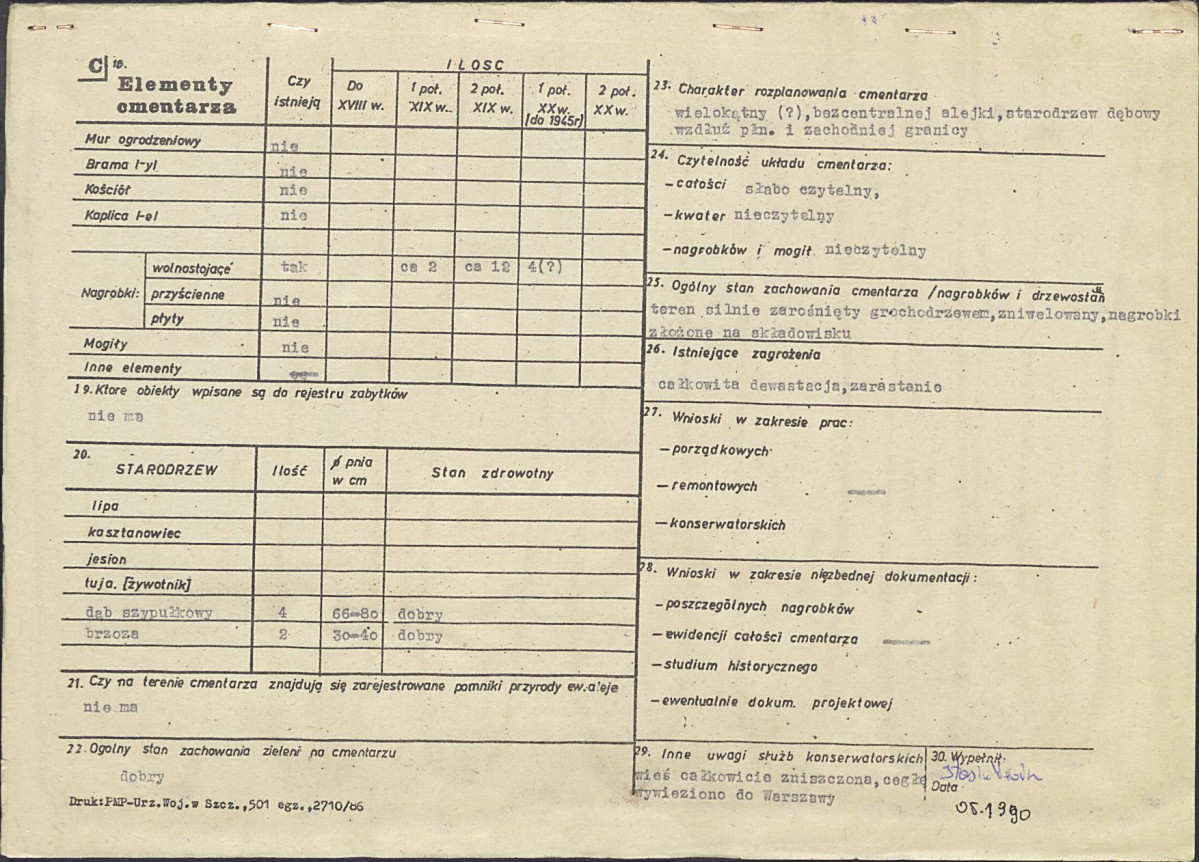 C 18.
Elementy
cmentarza
Czy
istnieją
ILOSC
Do
XVIII w.
1 poł.
XIX w.
2 poł.
XIX w.
1 poł.
XX w.
(do 1945r)
2 poł.
XX w.
Mur ogrodzeniowy nie
Brama /-y/ nie
Kościół nie
Kaplica /-e/ nie
Nagrobki:
wolnostojące tak ca 2 ca 12 4(?)
przyścienne nie
płyty nie
Mogiły nie
Inne elementy
19. Ktore obiekty wpisane są do rejestru zabytków
nie ma
20.
STARODRZEW Ilość ø pnia
w cm Stan zdrowotny
lipa
kasztanowiec
jesion
tuja. [żywotnik]
dąb szypułkowy 4 66-80 dobry
brzoza 2 30-40 dobry
21. Czy na terenie cmentarza znajdują się zarejestrowane pomniki przyrody ew. aleje
nie ma
22. Ogolny stan zachowania zieleni na cmentarzu
dobry
Druk:PMP-Urz.Woj.w Szcz.,501 egz.,2710/86
23. Charakter rozplanowania cmentarza
wielokątny (?),bezcentralnej alejki,starodrzew dębowy
wzdłuż płn. i zachodniej granicy
24. Czytelność układu cmentarza:
-całości słabo czytelny,
-kwater nieczytelny
-nagrobków i mogił nieczytelny
25. Ogólny stan zachowania cmentarza /nagrobków i drzewostan
teren silnie zarośnięty grochodrzewem,zniwelowany,nagrobki
złożone na składowisku
26. Istniejące zagrożenia
całkowita dewastacja,zarastanie
27. Wnioski w zakresie prac:
-porządkowych
-remontowych
-konserwatorskich
28. Wnioski w zakresie niezbednej dokumentacji:
-poszczególnych nagrobków
-ewidencji całości cmentarza
-studium historycznego
-ewentualnie dokum. projektowej
29. Inne uwagi służb konserwatorskich
wieś całkowicie zniszczona,cegłę
wywieziono do Warszawy
30. Wypełnił:
Data
08.1990